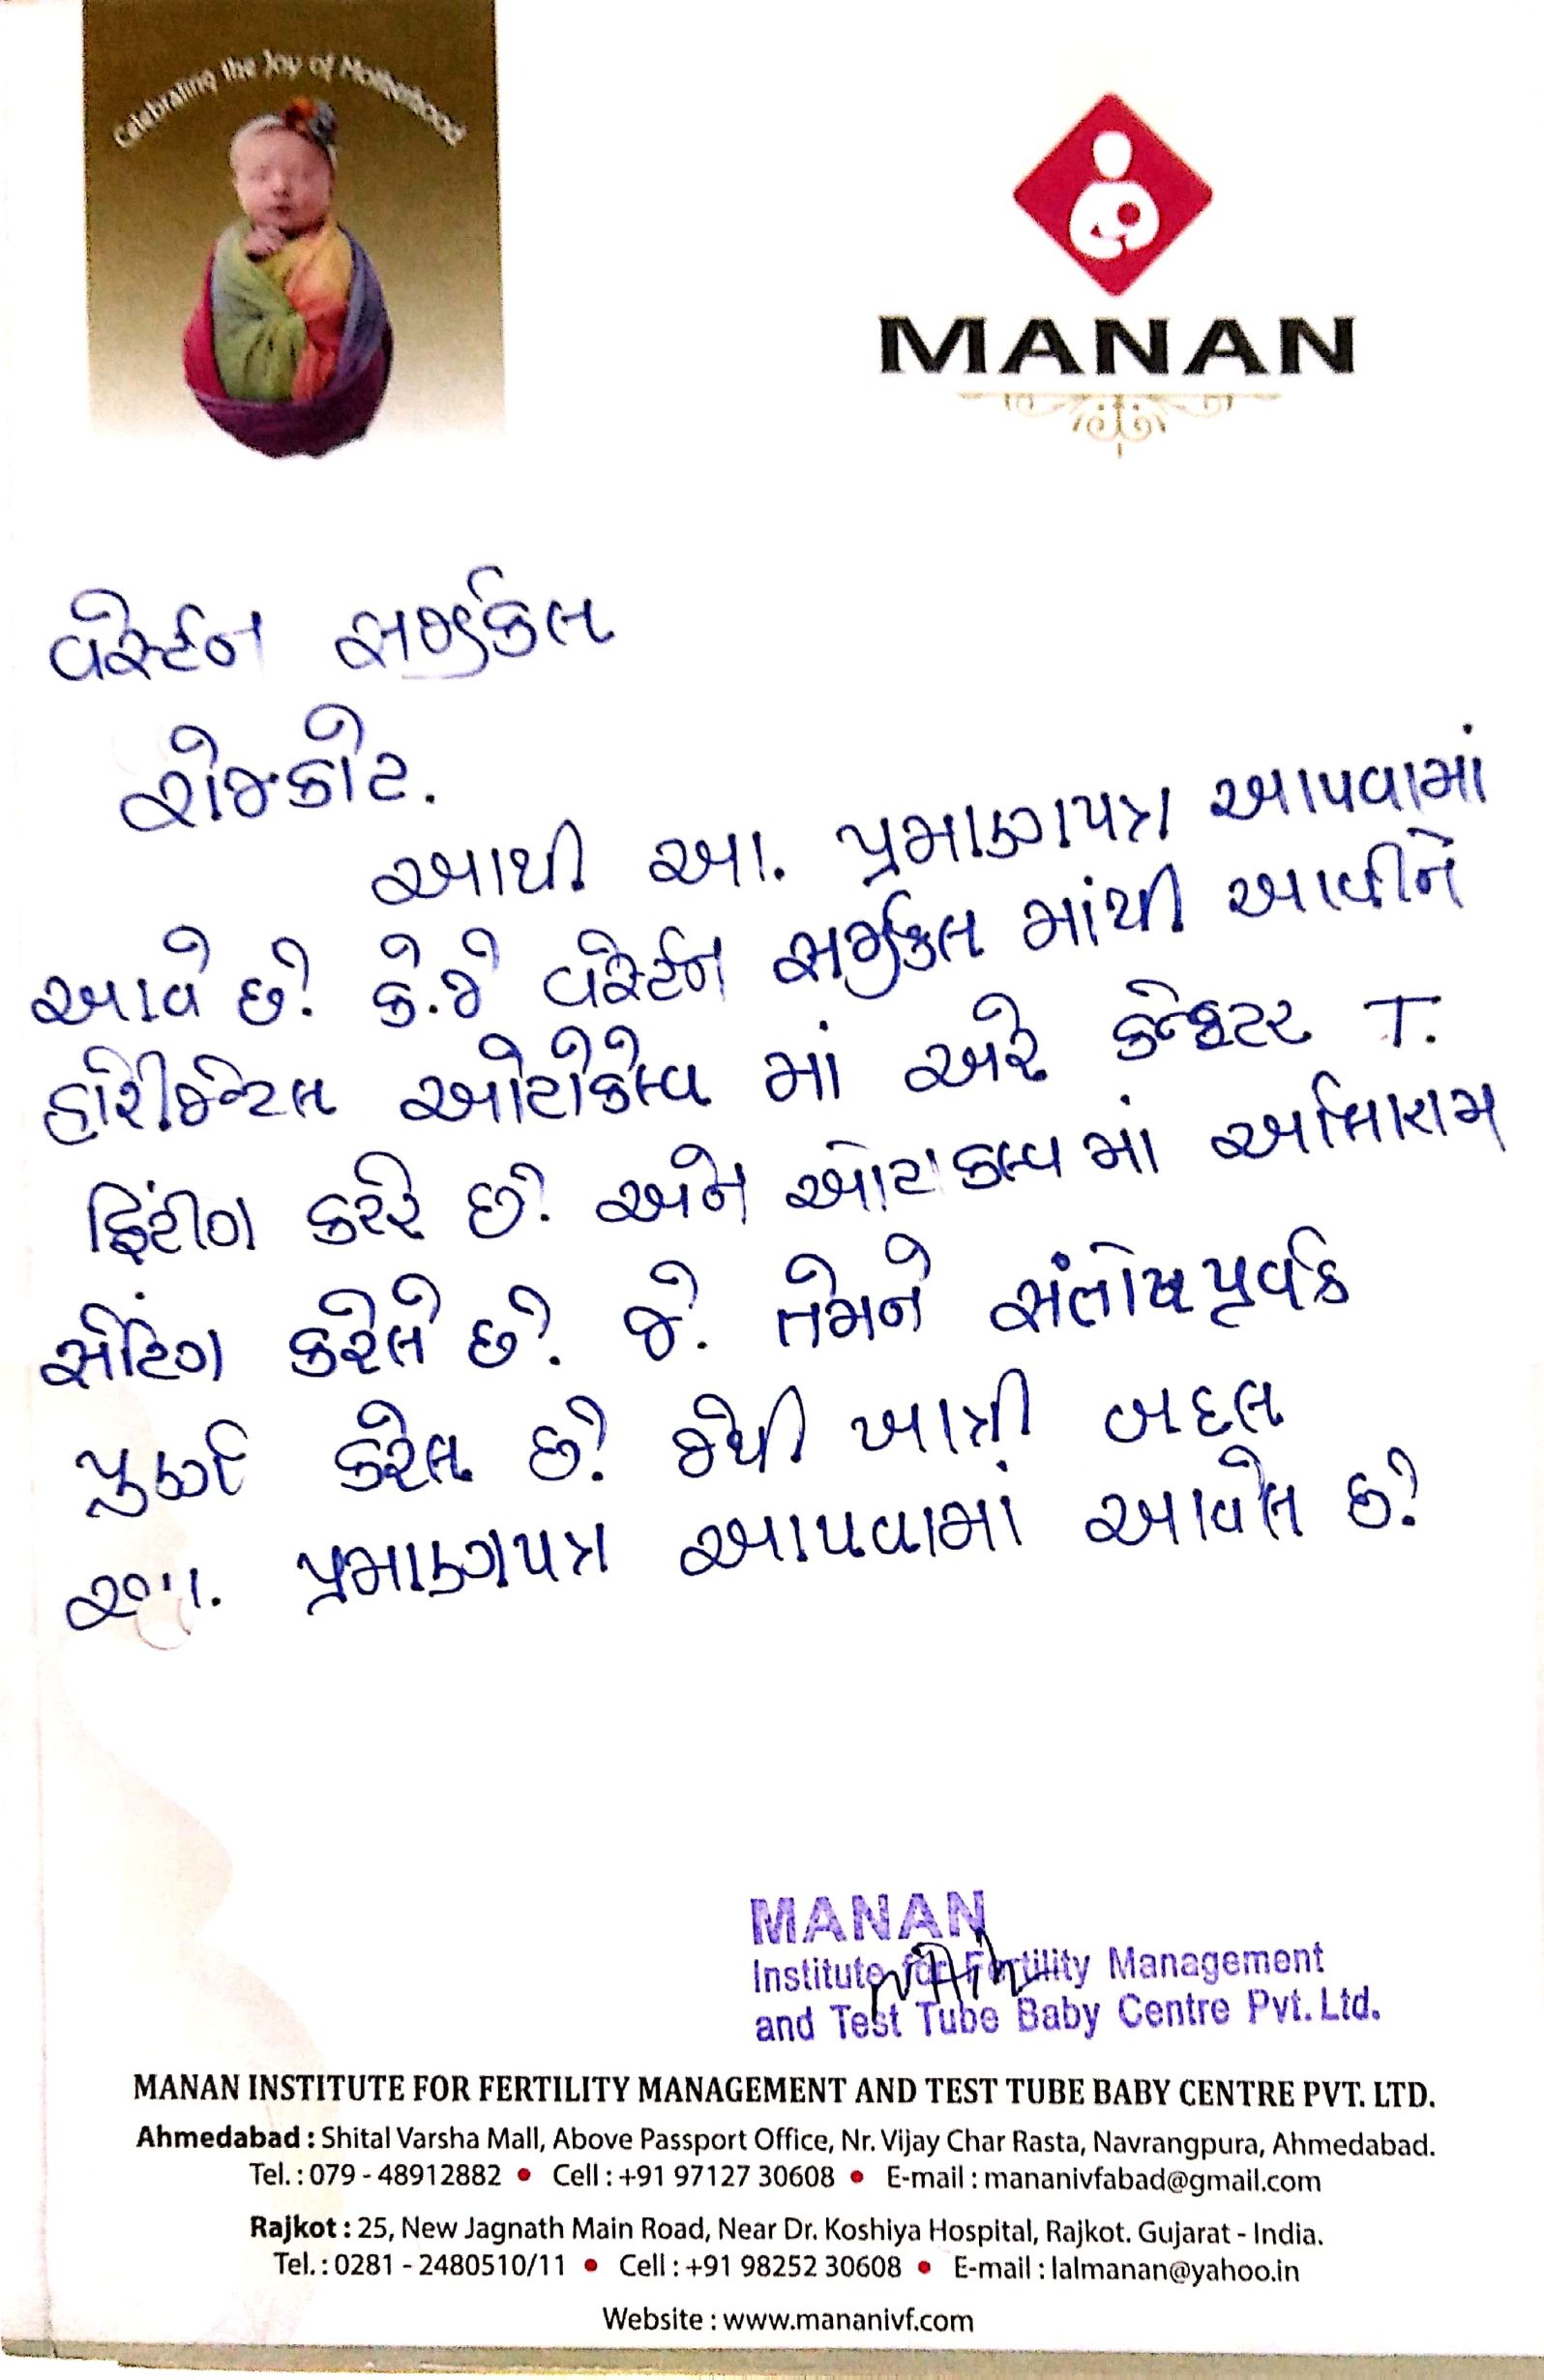 Celebrating the Joy of Motherhood
MANAN
વેર્સ્ટન સર્જીકલ
રાજકોટ.
આથી આ. પ્રમાણપત્ર આપવામાં
આવે છે. કે.જે વેર્સ્ટન સર્જીકલ માંથી આવીને
હોરીઝેન્ટલ ઓટોકલેવ માં અરે T.
ફિટીંગ કરેર છે. અને ઓટોકલેવ માં
સેટિંગ કરેલ છે. જે. તેમને સંતોષપૂર્વક
પુર્ણ કરેલ છે. જેથી ખાત્રી બદલ
આ. પ્રમાણપત્ર આપવામાં આવેલ છે.
MANAN
Institute for Fertility Management
and Test Tube Baby Centre Pvt. Ltd.
MANAN INSTITUTE FOR FERTILITY MANAGEMENT AND TEST TUBE BABY CENTRE PVT. LTD.
Ahmedabad : Shital Varsha Mall, Above Passport Office, Nr. Vijay Char Rasta, Navrangpura, Ahmedabad.
Tel. : 079 - 48912882 • Cell : +91 97127 30608 • E-mail : mananivfabad@gmail.com
Rajkot : 25, New Jagnath Main Road, Near Dr. Koshiya Hospital, Rajkot. Gujarat - India.
Tel. : 0281 - 2480510/11 • Cell : +91 98252 30608 • E-mail : lalmanan@yahoo.in
Website : www.mananivf.com